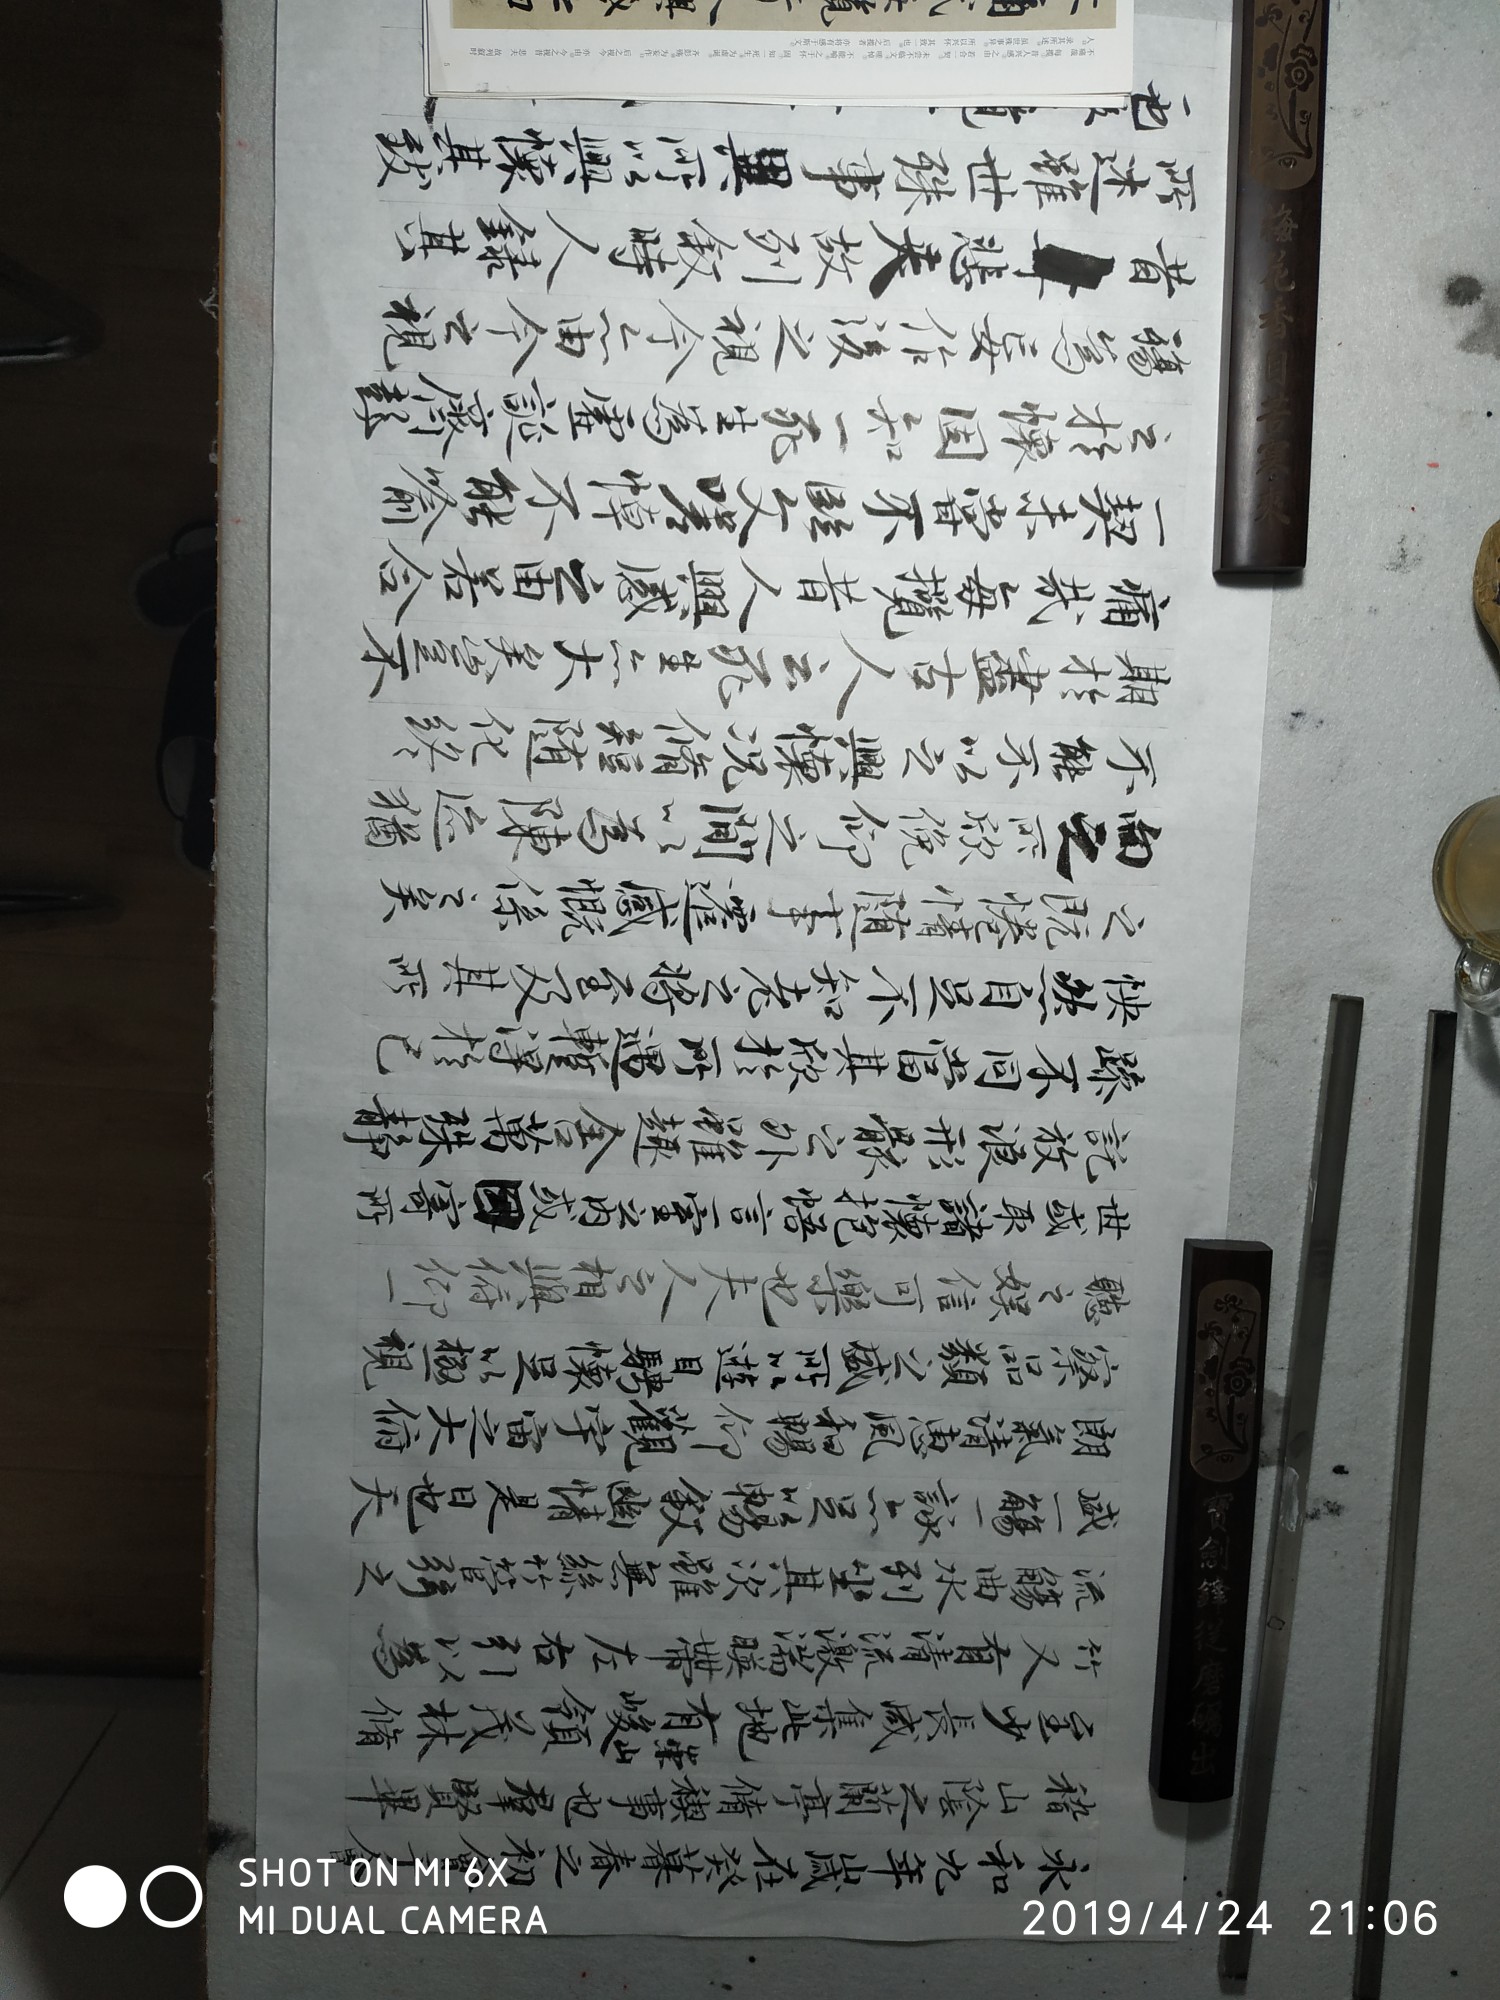 永和九年歲在癸丑暮春之初會于會
稽山陰之蘭亭脩禊事也群賢畢
至少長咸集此地有崇山峻領茂林脩
竹又有清流激湍暎帶左右引以為
流觴曲水列坐其次雖無絲竹管弦之
盛一觴一詠亦足以暢敘幽情是日也天
朗氣清惠風和暢仰觀宇宙之大俯
察品類之盛所以遊目騁懷足以極視
聽之娛信可樂也夫人之相與俯仰一
世或取諸懷抱悟言一室之內或因寄所
託放浪形骸之外雖趣舍萬殊靜
躁不同當其欣於所遇蹔得於己
怏然自足不知老之將至及其所
之既惓情隨事遷感慨係之矣
向之所欣俛仰之間以為陳迹猶
不能不以之興懷況脩短隨化終
期於盡古人云死生亦大矣豈不
痛哉每攬昔人興感之由若合
一契未嘗不臨文嗟悼不能喻
之於懷固知一死生為虛誕齊彭
殤為妄作後之視今亦由今之視
昔悲夫故列敘時人錄其
所述雖世殊事異所以興懷其致
一也
SHOT ON MI 6X
MI DUAL CAMERA
2019/4/24 21:06